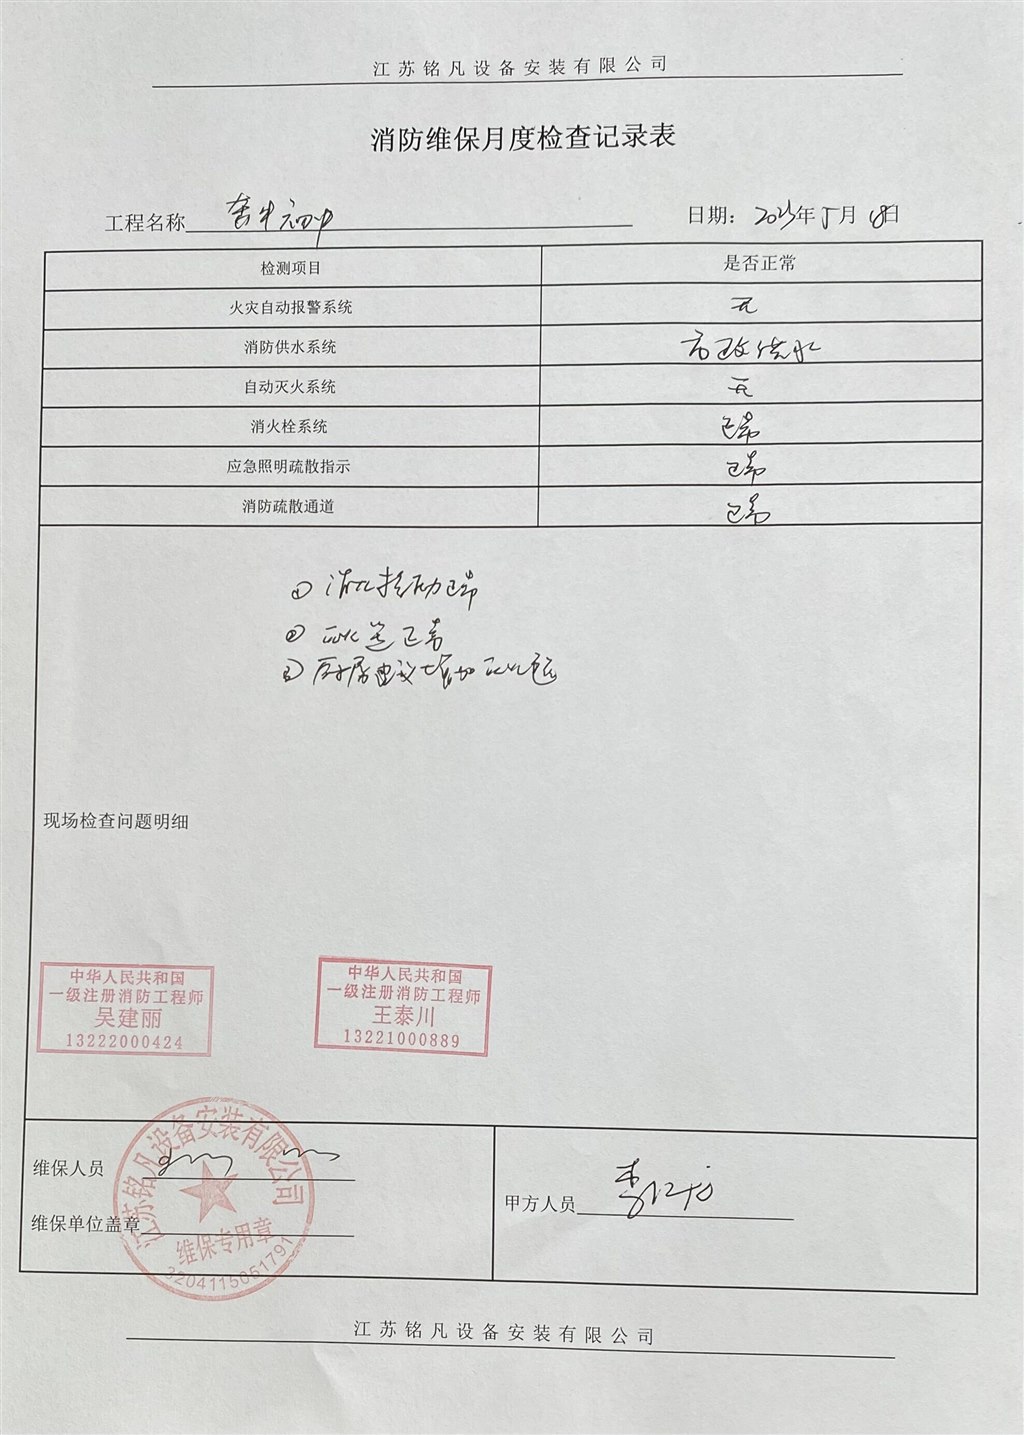 江苏铭凡设备安装有限公司
消防维保月度检查记录表
工程名称 奔牛初中 日期: 2023年5月18日
检测项目 是否正常
火灾自动报警系统 无
消防供水系统 市政供水
自动灭火系统 无
消火栓系统 正常
应急照明疏散指示 正常
消防疏散通道 正常
① 消火栓压力正常
② 灭火器正常
③ 厨房建议增加灭火毯
现场检查问题明细
中华人民共和国
一级注册消防工程师
吴建丽
13222000424
中华人民共和国
一级注册消防工程师
王泰川
13221000889
维保人员
甲方人员
维保单位盖章
江苏铭凡设备安装有限公司
维保专用章
3204115051791
江苏铭凡设备安装有限公司